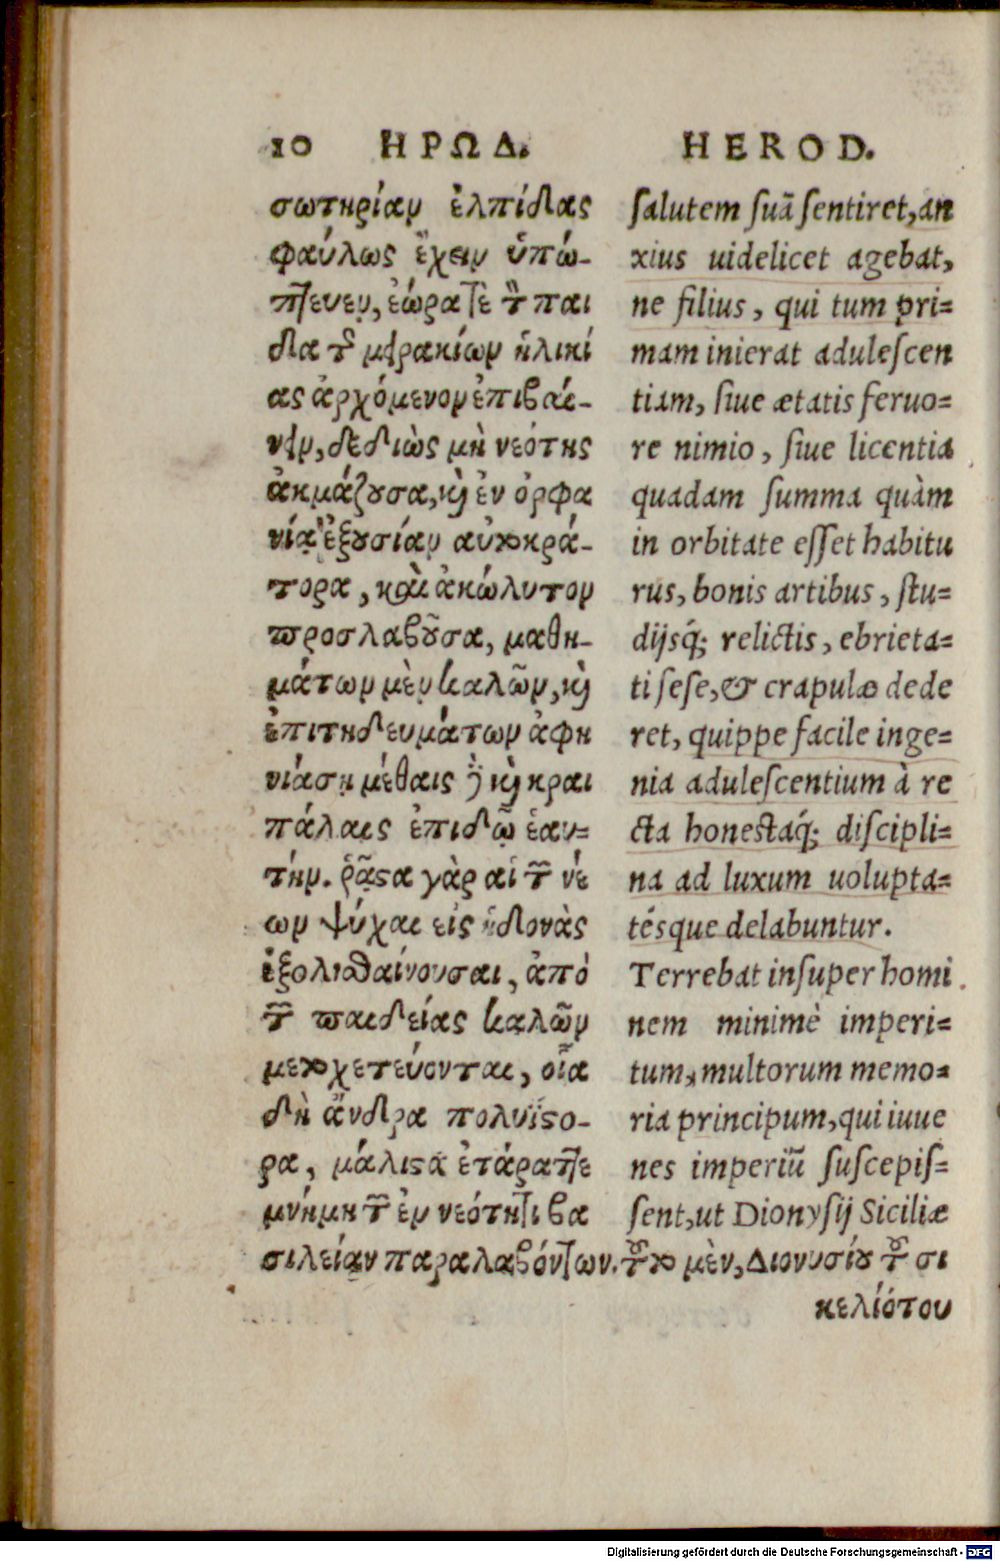 10 ΗΡΩΔ.
σωτηρίαν ἐλπίδας
φαύλως ἔχειν ὑπώ-
πτευεν, ἑώρα τὲ τὸν παῖ
δα τοῦ μειρακίων ἡλικί
ας ἀρχόμενον ἐπιβαί-
νειν, δεδιὼς μὴ νεότης
ἀκμάζουσα, καὶ ἐν ὀρφα
νίᾳ ἐξουσίαν αὐτοκρά-
τορα, καὶ ἀκώλυτον
προσλαβοῦσα, μαθη-
μάτων μὲν καλῶν, καὶ
ἐπιτηδευμάτων ἀφη
νιάσῃ μέθαις δὲ καὶ κραι
πάλαις ἐπιδῷ ἑαυ=
τήν. ῥᾷστα γὰρ αἱ τῶν νέ
ων ψύχαι εἰς ἡδονὰς
ἐξολισθαίνουσαι, ἀπὸ
τῶν παιδείας καλῶν
μετοχετεύονται, οἷα
δὴ ἄνδρα πολυΐστο-
ρα, μάλιστα ἐτάραττε
μνήμη τῶν ἐν νεότητι βα
σιλείαν παραλαβόντων. τοῦτο μὲν, Διονυσίου τοῦ σι
κελιότου
HEROD.
salutem suã sentiret, an
xius uidelicet agebat,
ne filius, qui tum pri=
mam inierat adulescen
tiam, siue ætatis feruo=
re nimio, siue licentia
quadam summa quàm
in orbitate esset habitu
rus, bonis artibus, stu=
dijsq́; relictis, ebrieta=
ti sese, & crapulæ dede
ret, quippe facile inge=
nia adulescentium à re
cta honestaq́; discipli=
na ad luxum uolupta=
tésque delabuntur.
Terrebat insuper homi
nem minimè imperi=
tum, multorum memo=
ria principum, qui iuue
nes imperiũ suscepis=
sent, ut Dionysij Siciliæ
Digitalisierung gefördert durch die Deutsche Forschungsgemeinschaft - DFG